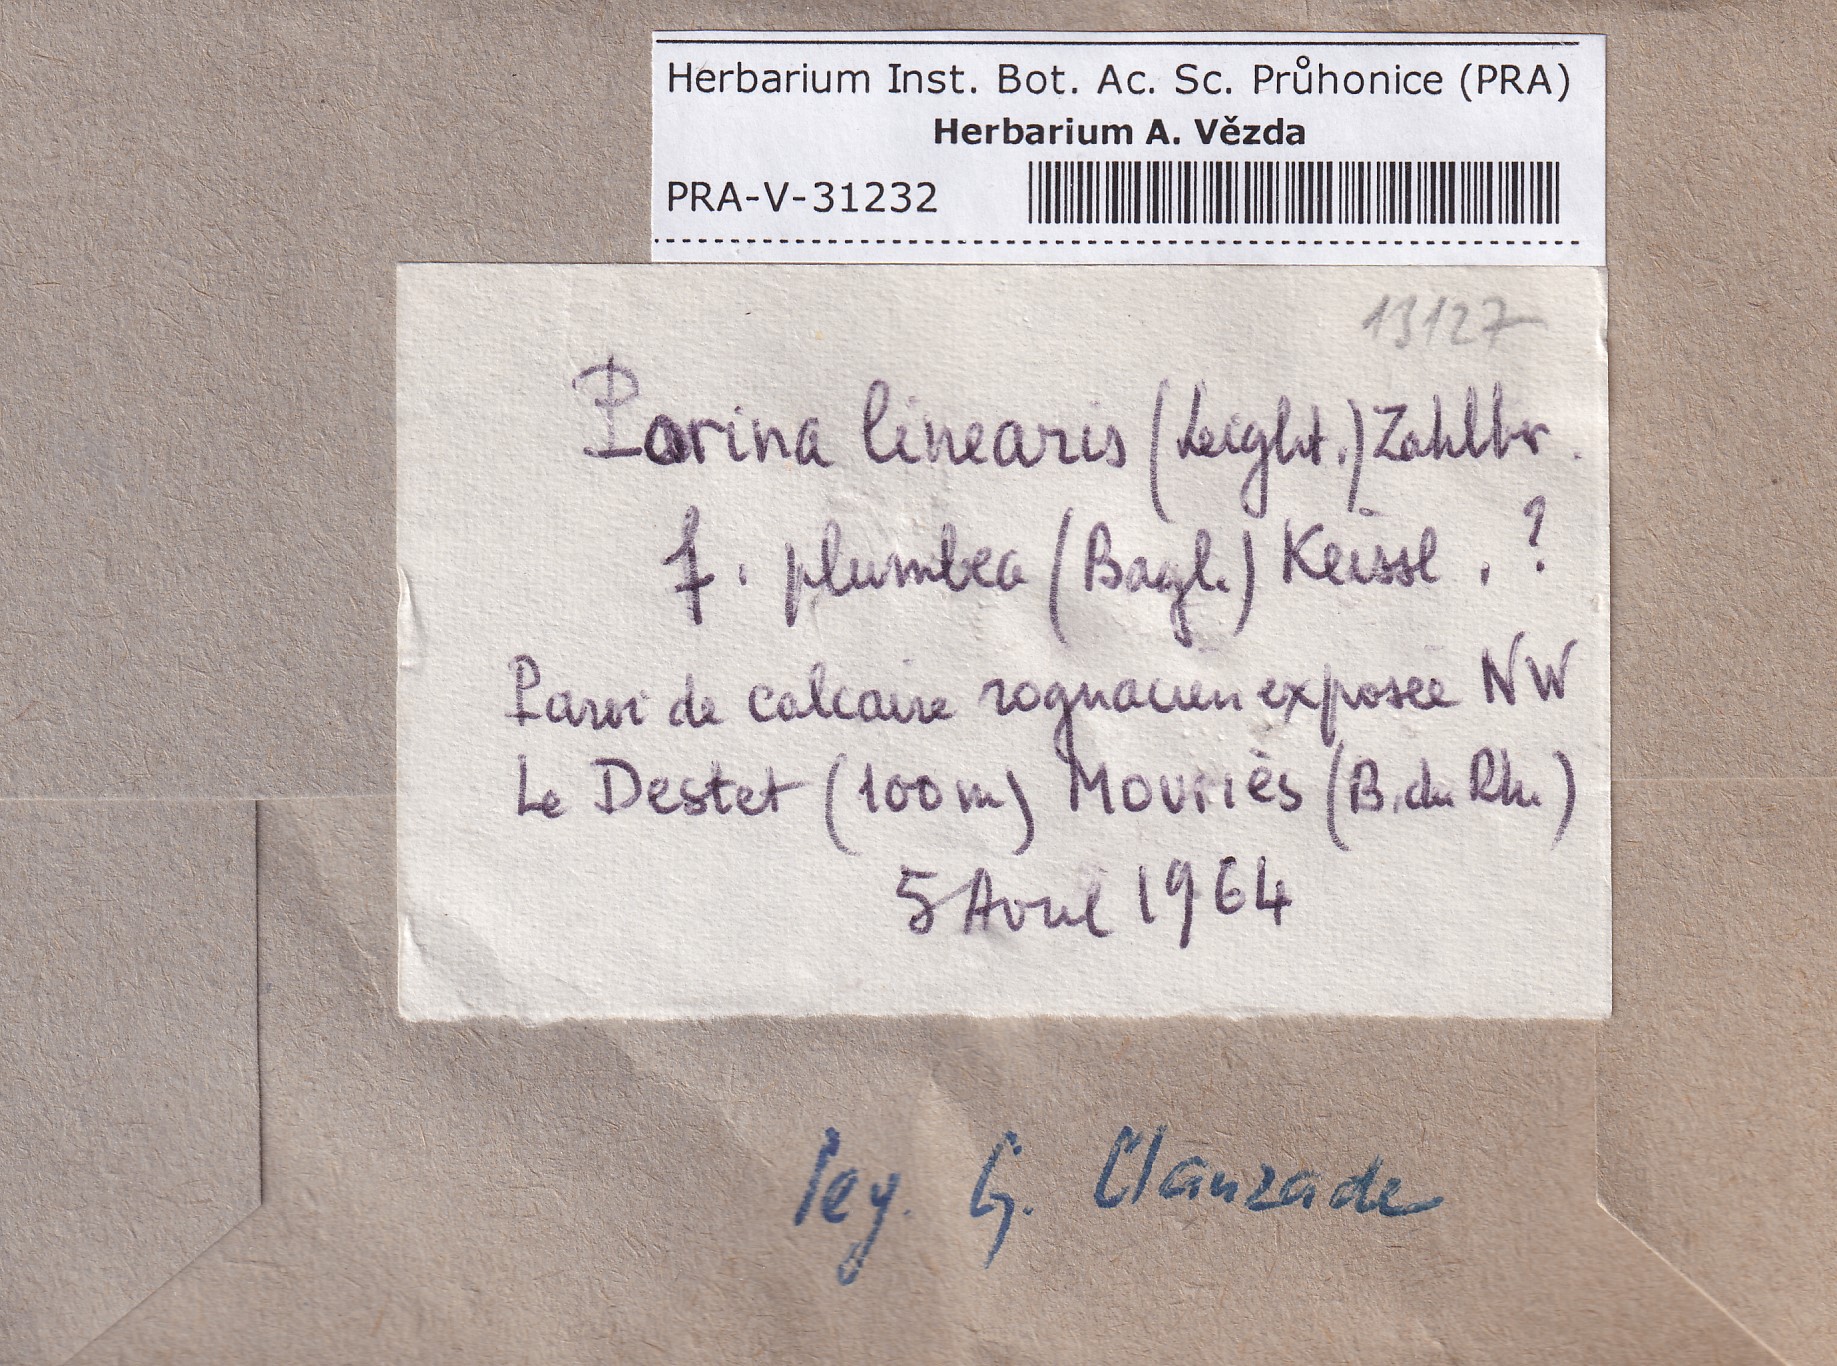 Herbarium Inst. Bot. Ac. Sc. Průhonice (PRA)
Herbarium A. Vězda
PRA-V-31232
13127
Porina linearis (Leight.) Zahlbr.
f. plumbea (Bagl.) Keissl. ?
Paroi de calcaire rognacien exposée NW
Le Destet (100 m) Mouriès (B. du Rh.)
5 Avril 1964
leg. G. Clauzade